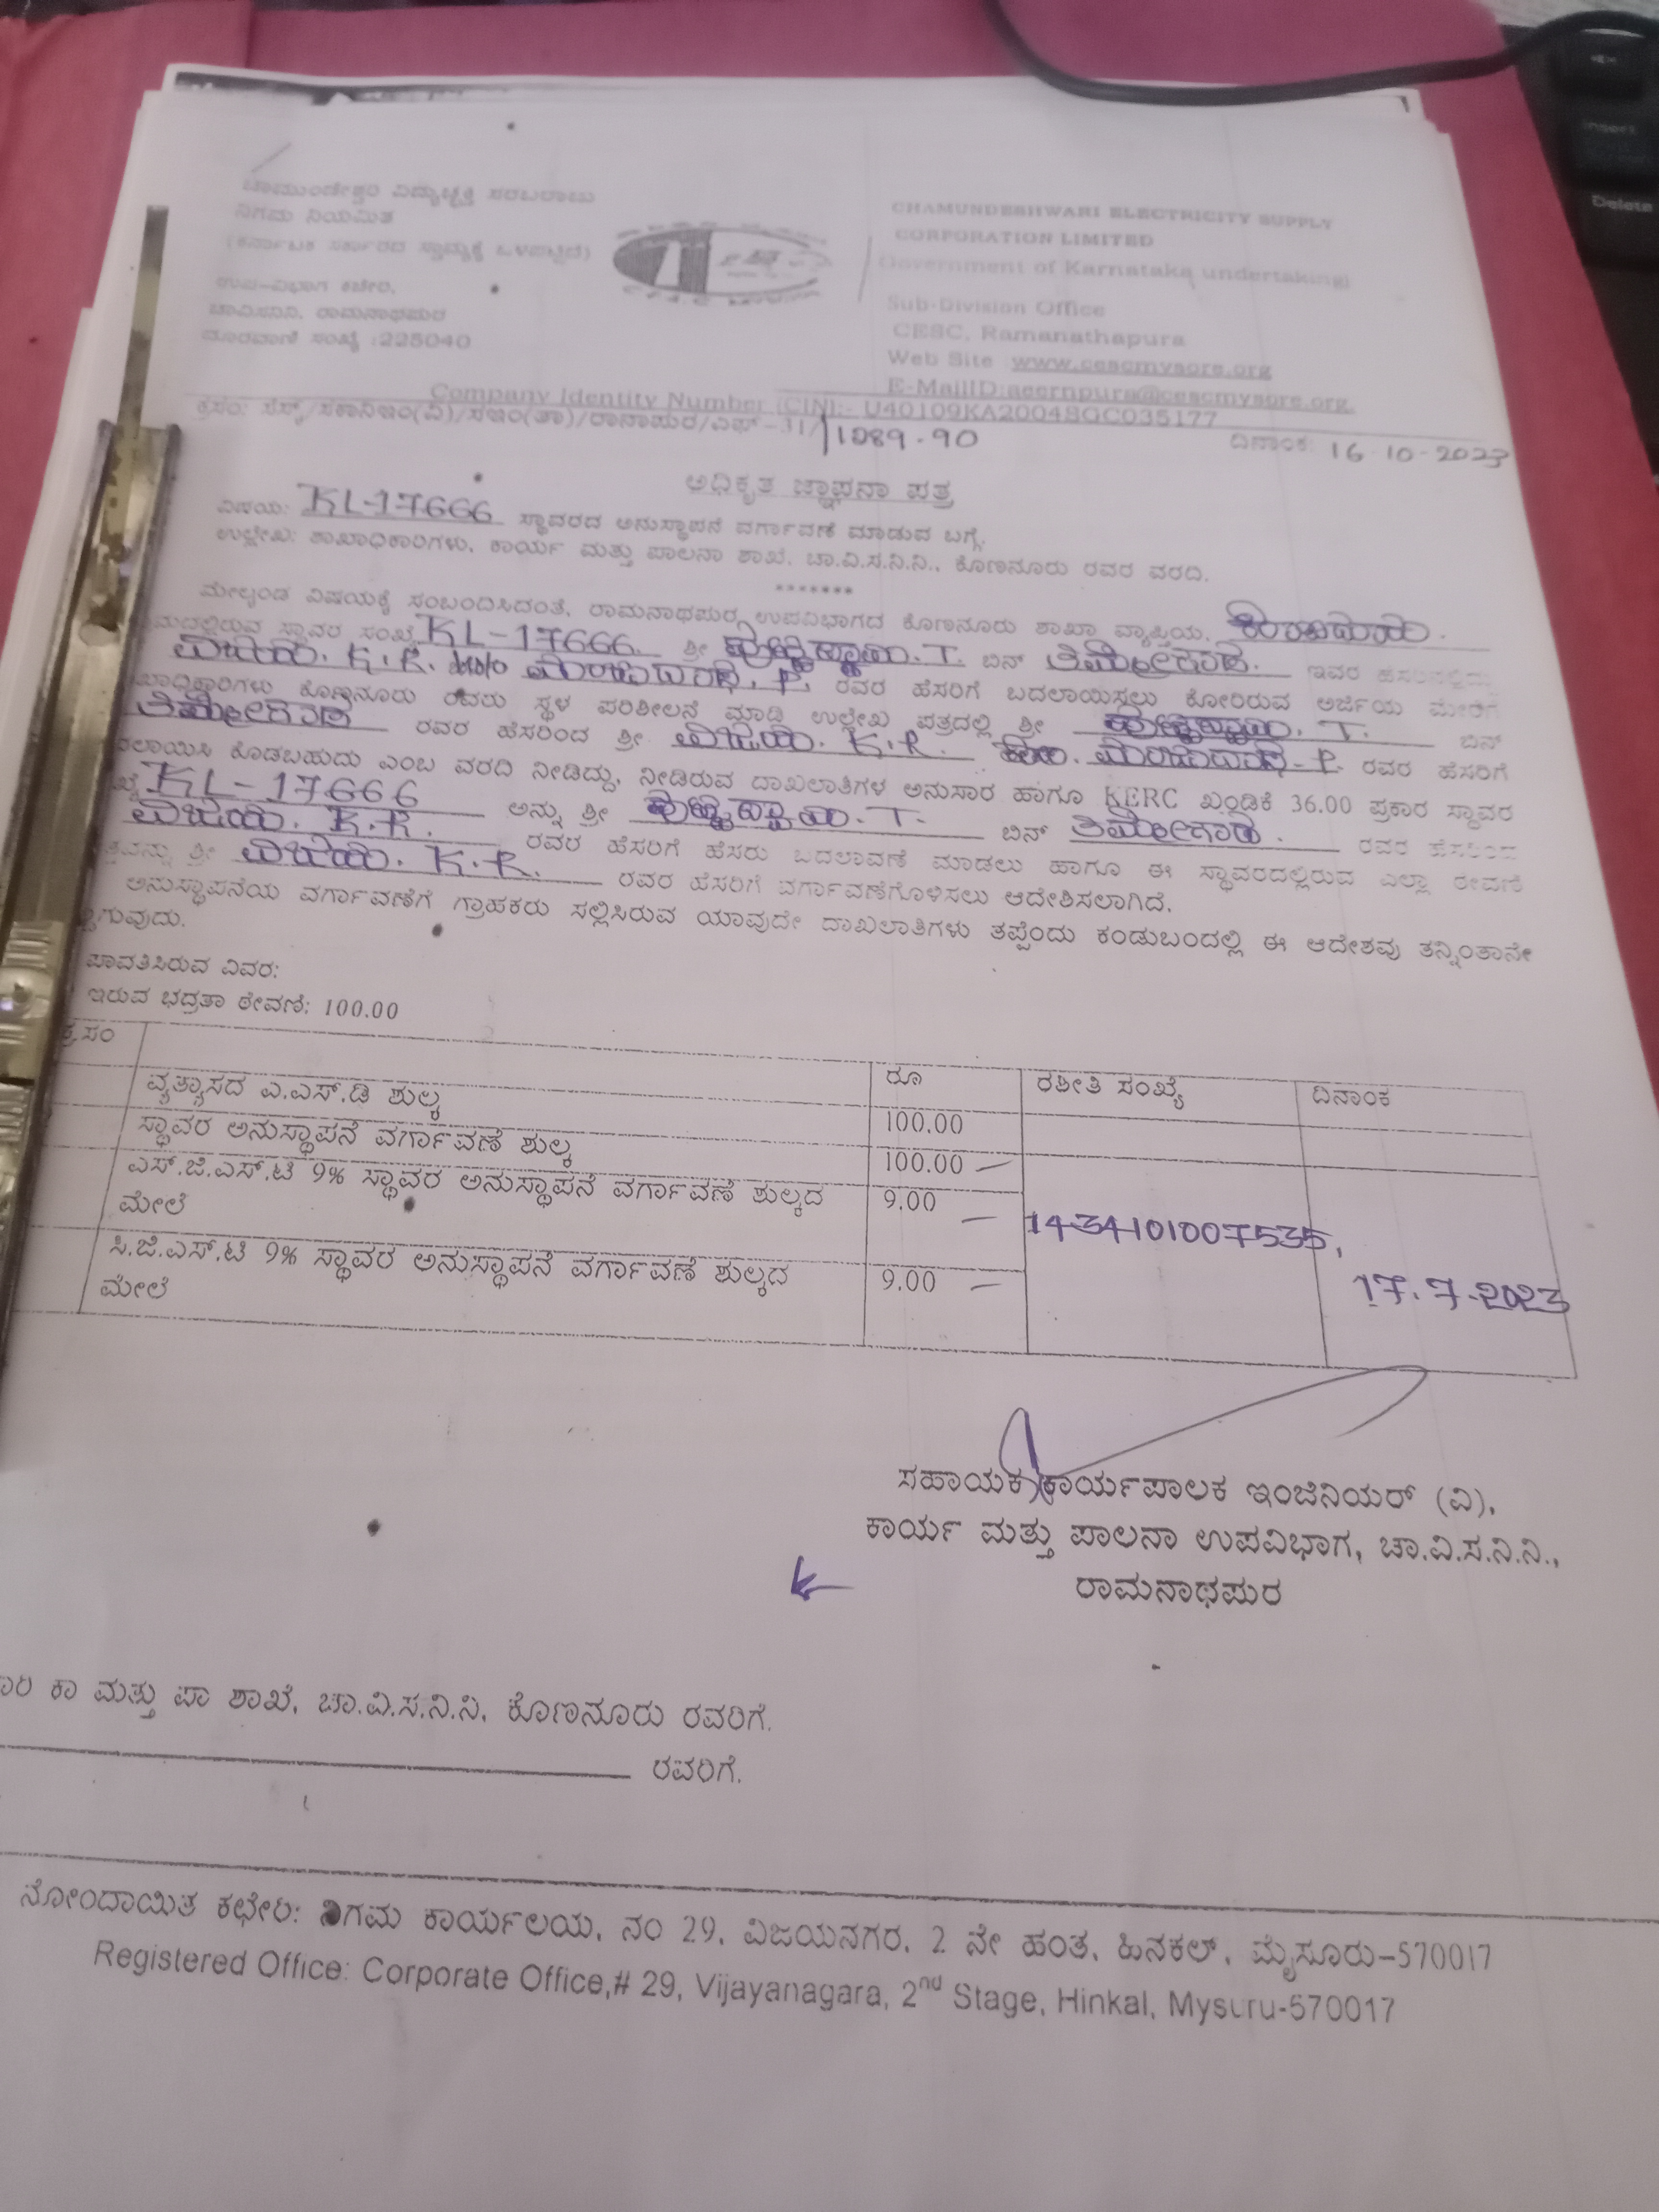 ಚಾಮುಂಡೇಶ್ವರಿ ವಿದ್ಯುಚ್ಛಕ್ತಿ ಸರಬರಾಜು
ನಿಗಮ ನಿಯಮಿತ
(ಕರ್ನಾಟಕ ಸರ್ಕಾರದ ಸ್ವಾಮ್ಯಕ್ಕೆ ಒಳಪಟ್ಟಿದೆ)
ಉಪ-ವಿಭಾಗ ಕಚೇರಿ,
ಚಾವಿಸನಿನಿ, ರಾಮನಾಥಪುರ
ದೂರವಾಣಿ ಸಂಖ್ಯೆ :225040
CHAMUNDESHWARI ELECTRICITY SUPPLY
CORPORATION LIMITED
Government of Karnataka undertaking)
Sub-Division Office
CESC, Ramanathapura
Web Site www.cescmysore.org
E-MailID:aeernpura@cescmysore.org.
Company Identity Number (CIN):- U40109KA2004SGC035177
ಕ್ರಸಂ: ಸೆಸ್ಕ್/ಸಕಾನಿಇಂ(ವಿ)/ಸಇಂ(ತಾ)/ರಾನಾಪುರ/ಎಫ್-31/ 1089-90 ದಿನಾಂಕ: 16-10-2023
ಅಧಿಕೃತ ಜ್ಞಾಪನಾ ಪತ್ರ
ವಿಷಯ: KL-17666 ಸ್ಥಾವರದ ಅನುಸ್ಥಾಪನೆ ವರ್ಗಾವಣೆ ಮಾಡುವ ಬಗ್ಗೆ.
ಉಲ್ಲೇಖ: ಶಾಖಾಧಿಕಾರಿಗಳು, ಕಾರ್ಯ ಮತ್ತು ಪಾಲನಾ ಶಾಖೆ, ಚಾ.ವಿ.ಸ.ನಿ.ನಿ., ಕೊಣನೂರು ರವರ ವರದಿ.
*******
ಮೇಲ್ಕಂಡ ವಿಷಯಕ್ಕೆ ಸಂಬಂದಿಸಿದಂತೆ, ರಾಮನಾಥಪುರ ಉಪವಿಭಾಗದ ಕೊಣನೂರು ಶಾಖಾ ವ್ಯಾಪ್ತಿಯ,
ಸ್ಥಾವರ ಸಂಖ್ಯೆ KL-17666 ಶ್ರೀ T. ಬಿನ್ ತಿಮ್ಮೇಗೌಡ. ಇವರ ಹೆಸರಿನಲ್ಲಿದ್ದು
K.R. W/o P. ರವರ ಹೆಸರಿಗೆ ಬದಲಾಯಿಸಲು ಕೋರಿರುವ ಅರ್ಜಿಯ ಮೇರೆಗೆ
ಕೊಣನೂರು ರವರು ಸ್ಥಳ ಪರಿಶೀಲನೆ ಮಾಡಿ ಉಲ್ಲೇಖ ಪತ್ರದಲ್ಲಿ ಶ್ರೀ T. ಬಿನ್
ತಿಮ್ಮೇಗೌಡ ರವರ ಹೆಸರಿಂದ ಶ್ರೀ K.R. P. ರವರ ಹೆಸರಿಗೆ
ಕೊಡಬಹುದು ಎಂಬ ವರದಿ ನೀಡಿದ್ದು, ನೀಡಿರುವ ದಾಖಲಾತಿಗಳ ಅನುಸಾರ ಹಾಗೂ KERC ಖಂಡಿಕೆ 36.00 ಪ್ರಕಾರ ಸ್ಥಾವರ
KL-17666 ಅನ್ನು ಶ್ರೀ T. ಬಿನ್ ತಿಮ್ಮೇಗೌಡ. ರವರ ಹೆಸರಿಂದ
K.R. ರವರ ಹೆಸರಿಗೆ ಹೆಸರು ಬದಲಾವಣೆ ಮಾಡಲು ಹಾಗೂ ಈ ಸ್ಥಾವರದಲ್ಲಿರುವ ಎಲ್ಲಾ ಠೇವಣಿ
ಶ್ರೀ K.R. ರವರ ಹೆಸರಿಗೆ ವರ್ಗಾವಣೆಗೊಳಿಸಲು ಆದೇಶಿಸಲಾಗಿದೆ.
ಅನುಸ್ಥಾಪನೆಯ ವರ್ಗಾವಣೆಗೆ ಗ್ರಾಹಕರು ಸಲ್ಲಿಸಿರುವ ಯಾವುದೇ ದಾಖಲಾತಿಗಳು ತಪ್ಪೆಂದು ಕಂಡುಬಂದಲ್ಲಿ ಈ ಆದೇಶವು ತನ್ನಿಂತಾನೇ
ಪಾವತಿಸಿರುವ ವಿವರ:
ಇರುವ ಭದ್ರತಾ ಠೇವಣಿ: 100.00
ಕ್ರ.ಸಂ ರೂ ರಶೀತಿ ಸಂಖ್ಯೆ ದಿನಾಂಕ
ವ್ಯತ್ಯಾಸದ ಎ.ಎಸ್.ಡಿ ಶುಲ್ಕ 100.00
ಸ್ಥಾವರ ಅನುಸ್ಥಾಪನೆ ವರ್ಗಾವಣೆ ಶುಲ್ಕ 100.00
ಎಸ್.ಜಿ.ಎಸ್.ಟಿ 9% ಸ್ಥಾವರ ಅನುಸ್ಥಾಪನೆ ವರ್ಗಾವಣೆ ಶುಲ್ಕದ 9.00
ಮೇಲೆ
1434101007535,
ಸಿ.ಜಿ.ಎಸ್.ಟಿ 9% ಸ್ಥಾವರ ಅನುಸ್ಥಾಪನೆ ವರ್ಗಾವಣೆ ಶುಲ್ಕದ 9.00
ಮೇಲೆ
17.7.2023
ಸಹಾಯಕ ಕಾರ್ಯಪಾಲಕ ಇಂಜಿನಿಯರ್ (ವಿ),
ಕಾರ್ಯ ಮತ್ತು ಪಾಲನಾ ಉಪವಿಭಾಗ, ಚಾ.ವಿ.ಸ.ನಿ.ನಿ.,
ರಾಮನಾಥಪುರ
ಕಾ ಮತ್ತು ಪಾ ಶಾಖೆ, ಚಾ.ವಿ.ಸ.ನಿ.ನಿ, ಕೊಣನೂರು ರವರಿಗೆ.
ರವರಿಗೆ.
ನೋಂದಾಯಿತ ಕಛೇರಿ: ನಿಗಮ ಕಾರ್ಯಲಯ, ನಂ 29, ವಿಜಯನಗರ, 2 ನೇ ಹಂತ, ಹಿನಕಲ್, ಮೈಸೂರು-570017
Registered Office: Corporate Office,# 29, Vijayanagara, 2nd Stage, Hinkal, Mysuru-570017
Insert
Delete